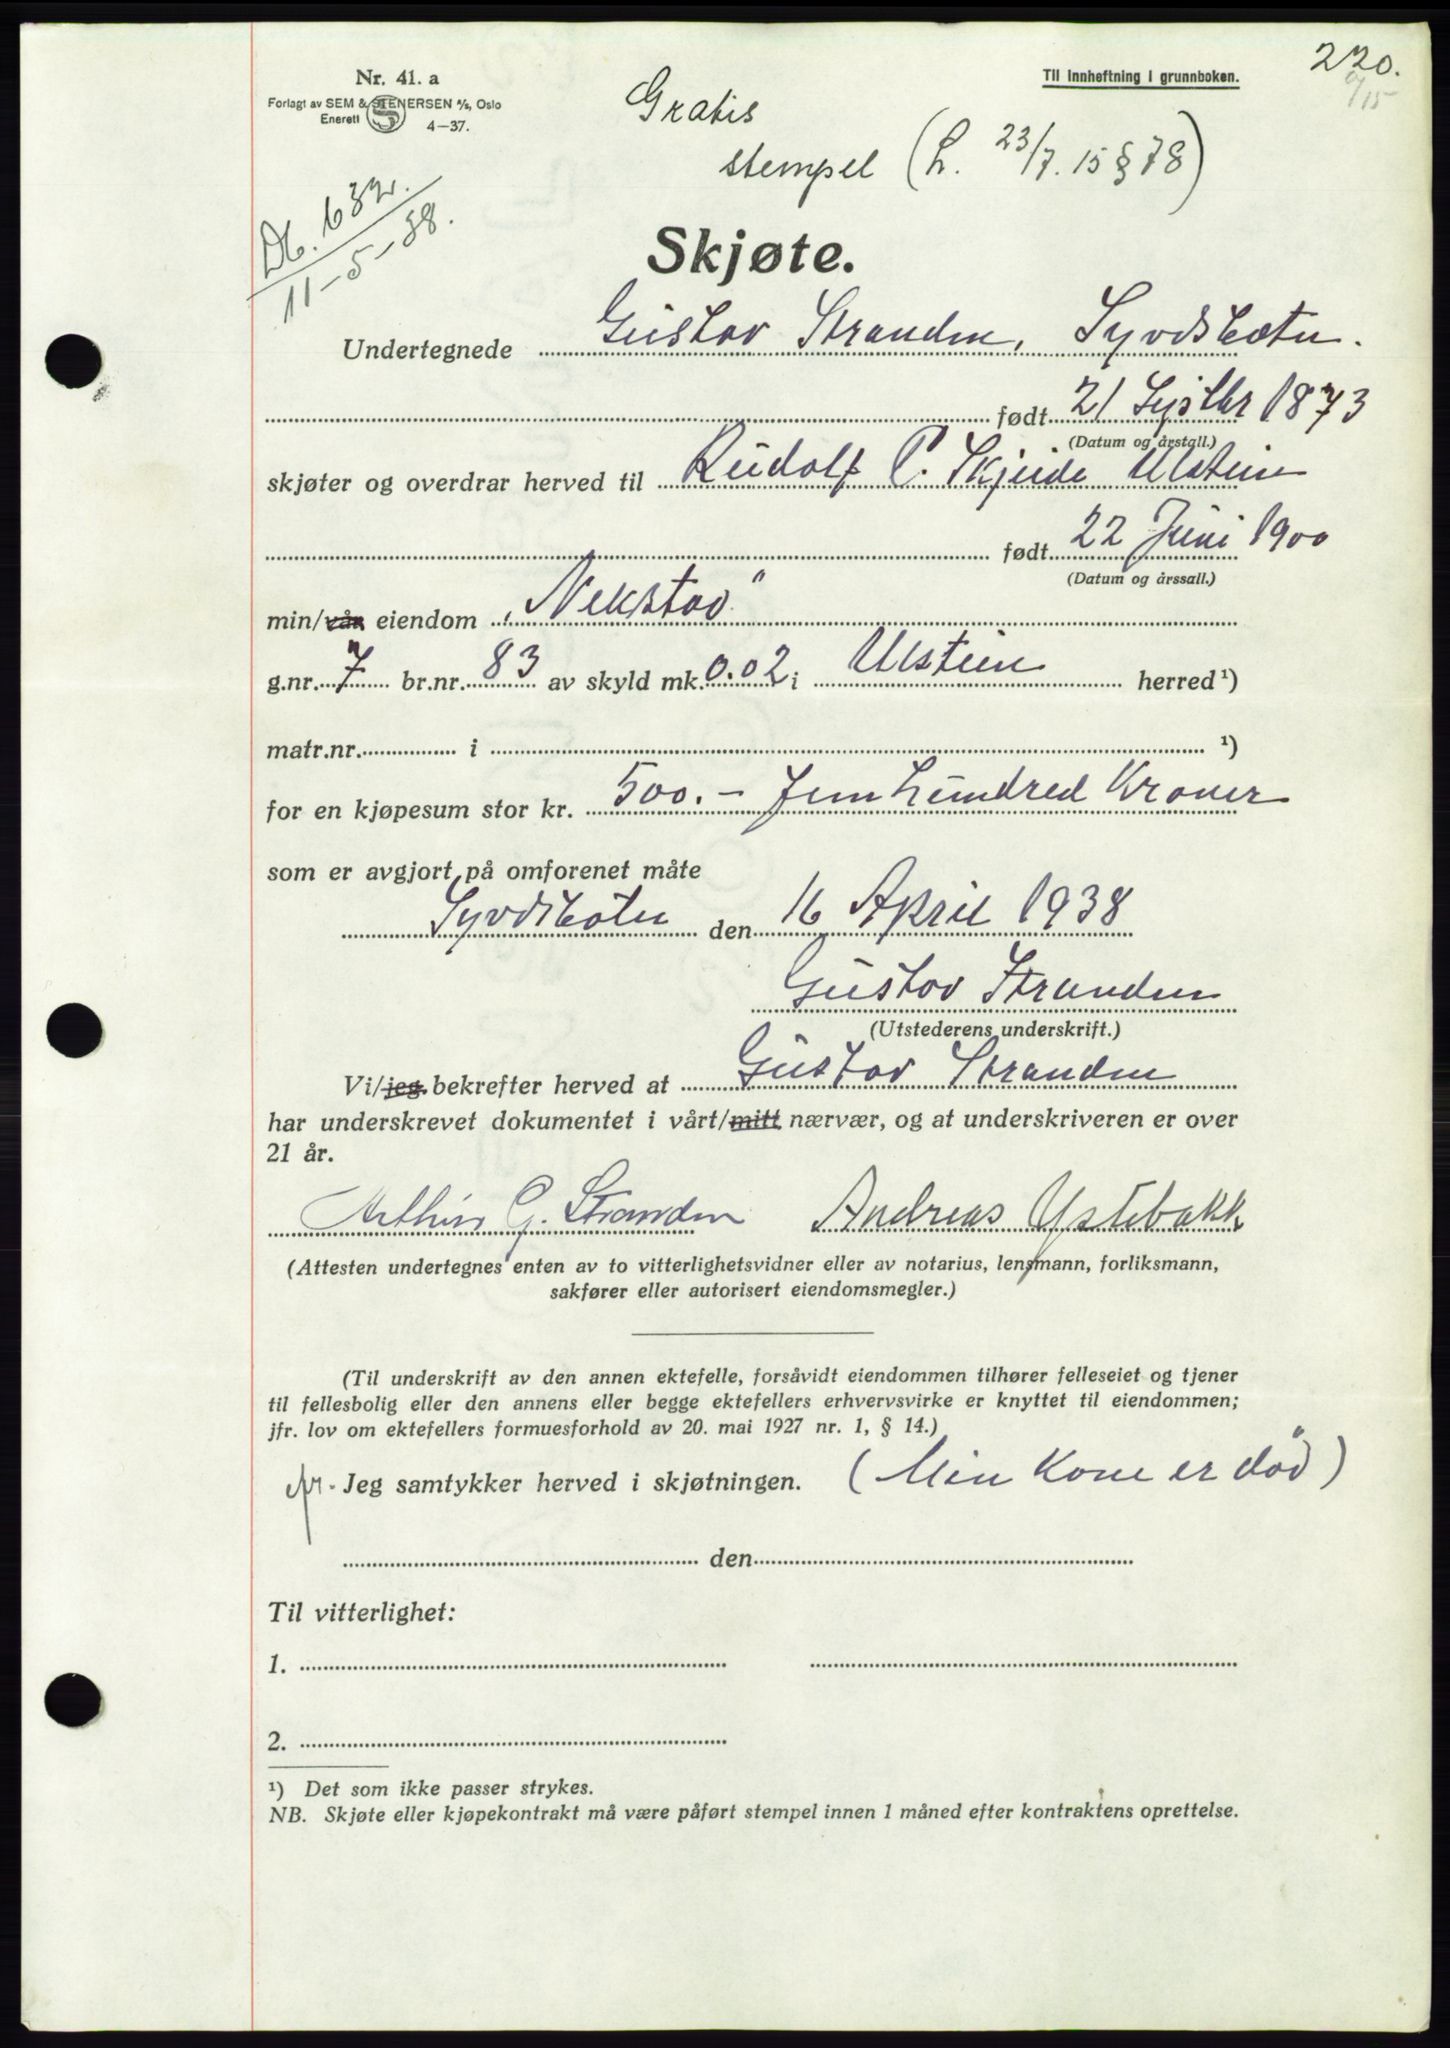 220.
9/15
Nr. 41. a
Forlagt av SEM & STENERSEN A/S, Oslo
Enerett 4—37.
Til innheftning i grunnboken.
Gratis
stempel (L. 23/7. 15 § 78)
Db. 632.
11-5-38.
Skjøte.
Undertegnede Gustav Stranden, Syvdsbotn.
født 21 Septbr 1873
(Datum og årstall.)
skjøter og overdrar herved til Rudolf P. Skjeide Ulstein
født 22 Juni 1900
(Datum og årssall.)
min/vår eiendom „Nekstad"
g.nr. 7 br.nr. 83 av skyld mk. 0.02 i Ulstein herred ¹)
matr.nr. i ¹)
for en kjøpesum stor kr. 500.- Fem hundred Kroner
som er avgjort på omforenet måte
Syvdsbotn den 16 April 1938
Gustav Stranden
(Utstederens underskrift.)
Vi/jeg bekrefter herved at Gustav Stranden
har underskrevet dokumentet i vårt/mitt nærvær, og at underskriveren er over
21 år.
Arthur G. Stranden Andreas Ystebakk
(Attesten undertegnes enten av to vitterlighetsvidner eller av notarius, lensmann, forliksmann,
sakfører eller autorisert eiendomsmegler.)
(Til underskrift av den annen ektefelle, forsåvidt eiendommen tilhører felleseiet og tjener
til fellesbolig eller den annens eller begge ektefellers erhvervsvirke er knyttet til eiendommen;
jfr. lov om ektefellers formuesforhold av 20. mai 1927 nr. 1, § 14.)
Jeg samtykker herved i skjøtningen. (Min Kone er död)
den
Til vitterlighet:
1.
2.
¹) Det som ikke passer strykes.
NB. Skjøte eller kjøpekontrakt må være påført stempel innen 1 måned efter kontraktens oprettelse.